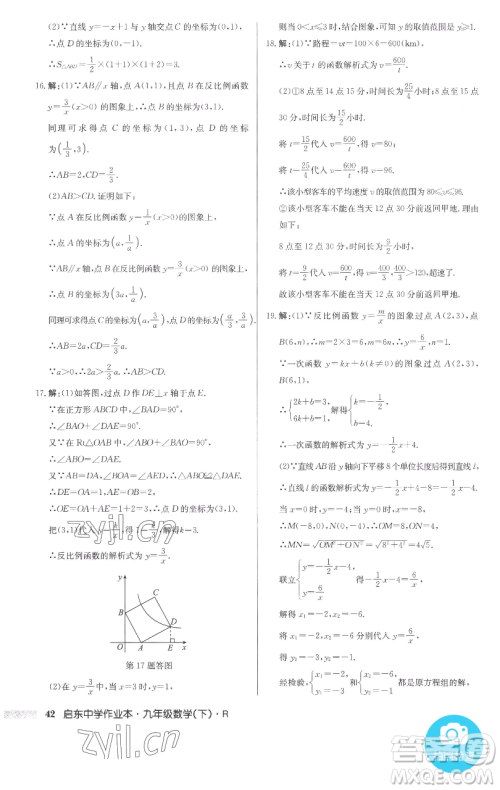 (2)∵直线CD的解析式为y=-x+2,
∴点D的坐标为(0,2).
16.解:(1)∵AB∥x轴,点A(1,3),且点B在反比例函数
y=3/x(x>0)的图象上,
为(1/3,3).
∴AB=2,CD=2/3.
(2)AB>CD.证明如下:
∵点A在反比例函数y=1/x的图象上,
∴点A的坐标为(a,1/a).
∴点B的坐标为(3a,1/a).
同理可求得点C的坐标为(a,3/a),点D的坐标为(a/3,3/a).
∴AB=2a,CD=2/3a.
∵a>0,∴2a>2/3a.∴AB>CD.
17.解:(1)如答图,过点D作DE⊥x轴于点E.
∵在正方形ABCD中,∠BAD=90°,
∴∠BAO+∠DAE=90°.
又∵在Rt△OAB中,∠ABO+∠BAO=90°,
∴∠ABO=∠DAE.
又∵AB=DA,∴△ABO≌△DAE(AAS).
∴DE=OA=1,AE=OB=2.
∴OE=OA+AE=1+2=3.∴D(3,1).
∴反比例函数的解析式为y=3/x.
y
C
B
D
O A E x
第17题答图
(2)在y=3/x中,当x=1时,y=3,
则当0<t<15/2时,结合图象,可知v的取值范围是v>80.
18.解:(1)∵路程=vt=100×6=600(km),
∴v关于t的函数解析式为v=600/t.
(2)①8点至14点15分,时间长为25/4小时,
8点至15点30分,时间长为15/2小时.
将t=15/2代入v=600/t,得v=80;
将t=25/4代入v=600/t,得v=96.
∴该小型客车的平均速度v的取值范围为80≤v≤96.
②该小型客车不能在当天12点30分前返回甲地.
理由:
8点至12点30分,时间长为9/2小时,
将t=9/2代入v=600/t,得v=400/3>120,超速了.
故该小型客车不能在当天12点30分前返回甲地.
19.解:(1)∵反比例函数y=m/x的图象过点A(2,3),点
B(6,n),∴m=2×3=6,n=1.∴y=6/x.
∵一次函数y=kx+b(k≠0)的图象过点A(2,3),点
B(6,1),
∴{2k+b=3, 6k+b=1, 解得{k=-1/2, b=4.
∴一次函数的解析式为y=-1/2x+4.
(2)∵直线AB沿y轴向下平移8个单位长度后得到直线l,
∴直线l的函数解析式为y=-1/2x+4-8=-1/2x-4.
当x=0时,y=-4;当y=0时,x=-8.
∴M(-8,0),N(0,-4).∴OM=8,ON=4.
∴MN=√(OM²+ON²)=√(8²+4²)=4√5.
联立{y=-1/2x-4, y=6/x,
解得x₁=-2,x₂=-6.
将x₁=-2,x₂=-6分别代入y=6/x,
得y₁=-3,y₂=-1.
42 启东中学作业本·九年级数学(下)·R
zyjl.cn